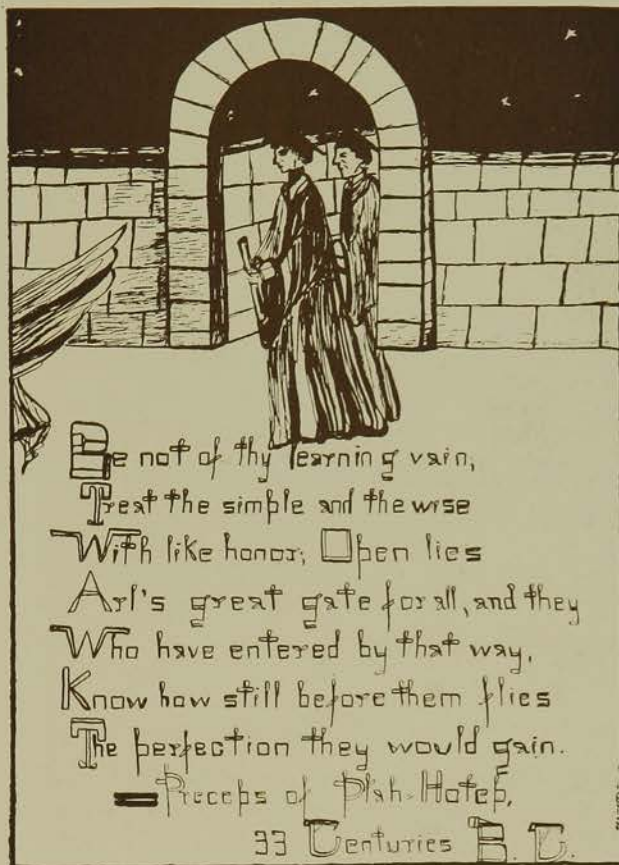 Be not of thy learning vain,
Treat the simple and the wise
With like honor; Open lies
Art's great gate for all, and they
Who have entered by that way,
Know how still before them flies
The perfection they would gain.
= Preceps of Ptah-Hotep,
33 Centuries B. C.